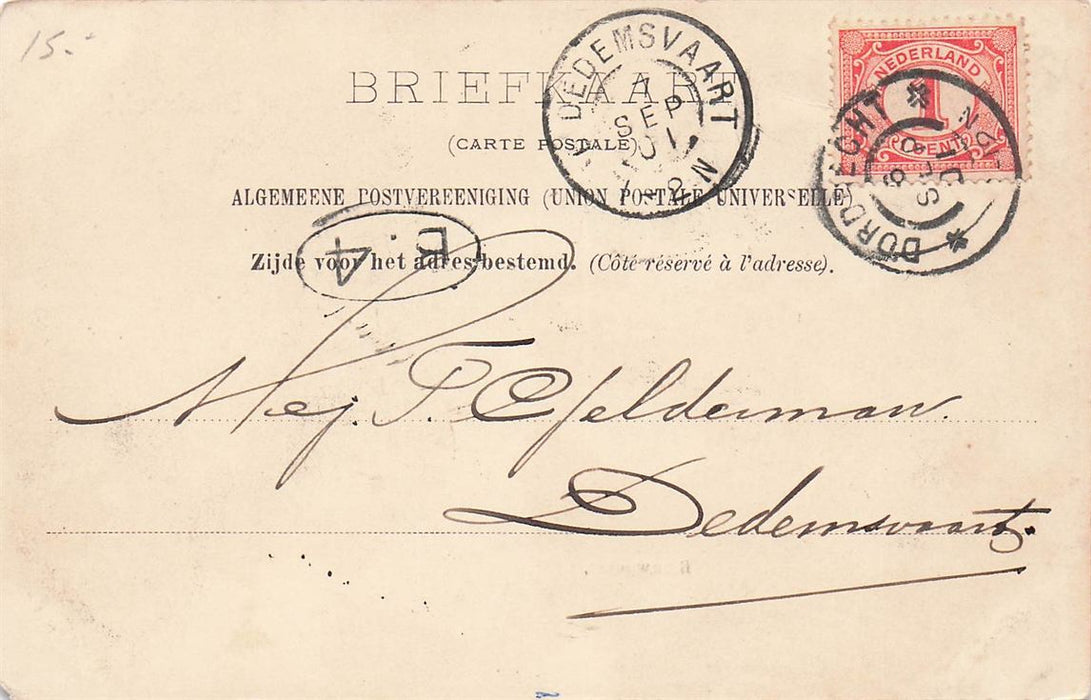 15.-
BRIEFKAART
(CARTE POSTALE)
ALGEMEENE POSTVEREENIGING (UNION POSTALE UNIVERSELLE)
Zijde voor het adres bestemd. (Côté réservé à l'adresse).
DEDEMSVAART
7
SEP
01
1-2 N
NEDERLAND
1
CENT
DORDRECHT
6
SEP
01
N
4
Mej. F. Elfelderman.
Dedemsvaart.